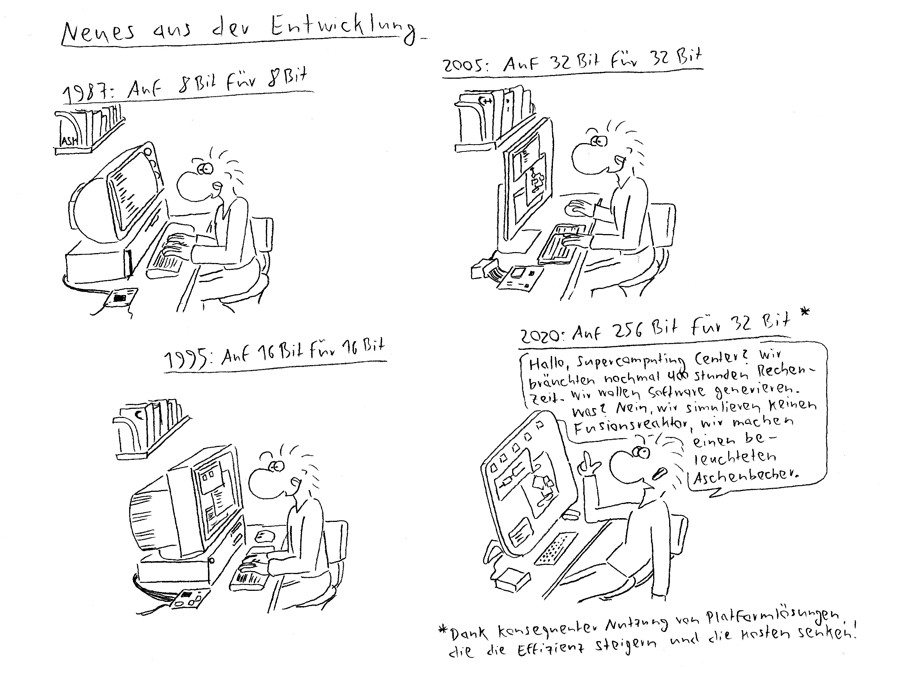 Neues aus der Entwicklung
1987: Auf 8Bit für 8Bit
ASM
2005: Auf 32 Bit für 32 Bit
C++
1995: Auf 16 Bit für 16 Bit
C
2020: Auf 256 Bit für 32 Bit *
Hallo, Supercomputing Center? Wir
bräuchten nochmal 400 Stunden Rechen-
zeit. Wir wollen Software generieren.
Was? Nein, wir simulieren keinen
Fusionsreaktor, wir machen
einen be-
leuchteten
Aschenbecher.
*Dank konsequenter Nutzung von Platformlösungen,
die die Effizienz steigern und die Kosten senken!